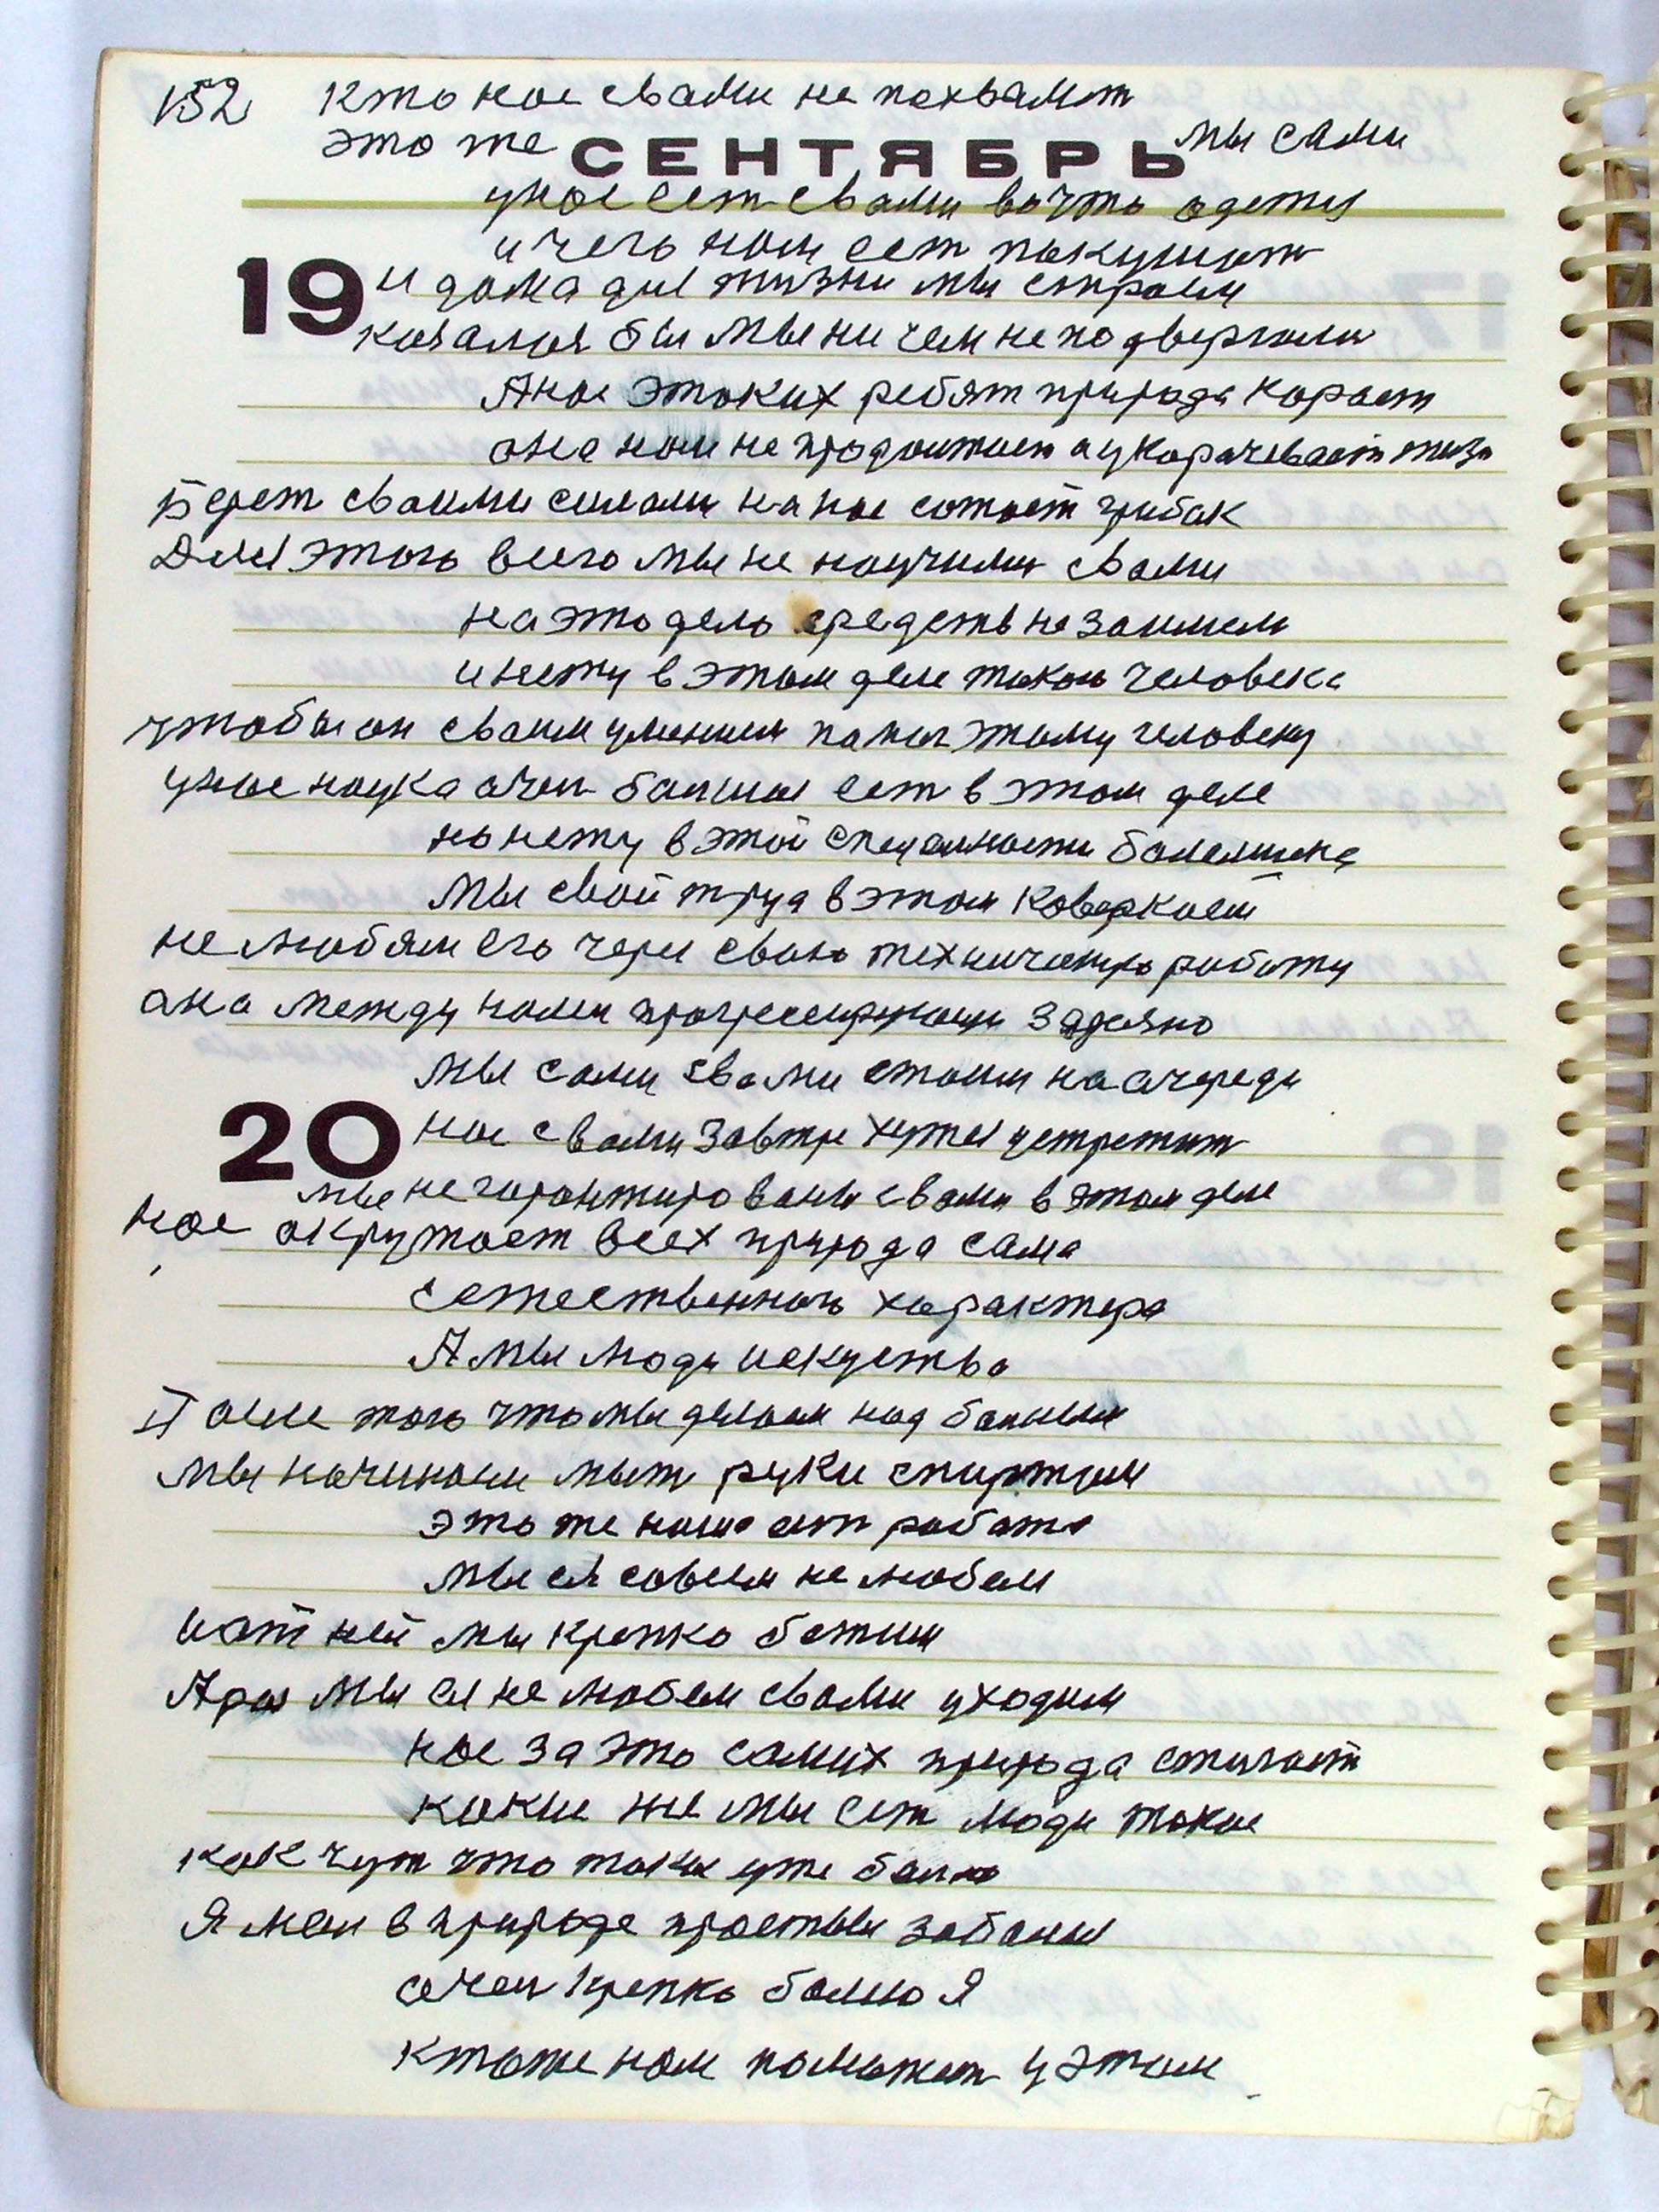 152 кто нас свами не похвалит
это же СЕНТЯБРЬ мы сами
унас ест свами вочто одетця
и чего нам ест покушат
19 и дома для жизни мы строем
казалоя бы мы ни чем не подвергали
А нас этаких ребят природа карает
она нам не продолжает а укорачевает жизн
Берет своими силами на нас сажает грибак
Для этого всего мы не научили свами
на это дело средств не заимели
и нету в этом деле такого человека
чтобы он своим умением помог этому человеку
унас наука очен болшая ест в этом деле
но нету в этой специалности
мы свой труд в этом коверкаем
не любям его через свою техническую работу
она между нами прогрессирующи
мы сами свами стоим на очереди
20 нас свами завтре хужея устретит
мы не гарантированы свами в этом деле
нас окружает всех природа сама
естественного характера
А мы люди искуства
После того что мы делаем над болным
мы начинаем мыт руки спиртом
это же наша ест работа
мы ея совсем не любем
и от ней мы крепко бежим
А раз мы ея не любем свами уходим
нас за это самих природа стигает
какие же мы ест люди такие
как чут что таки уже болно
Я мол в природе простым заболел
очен крепко болно Я
ктоже нам поможет у этом